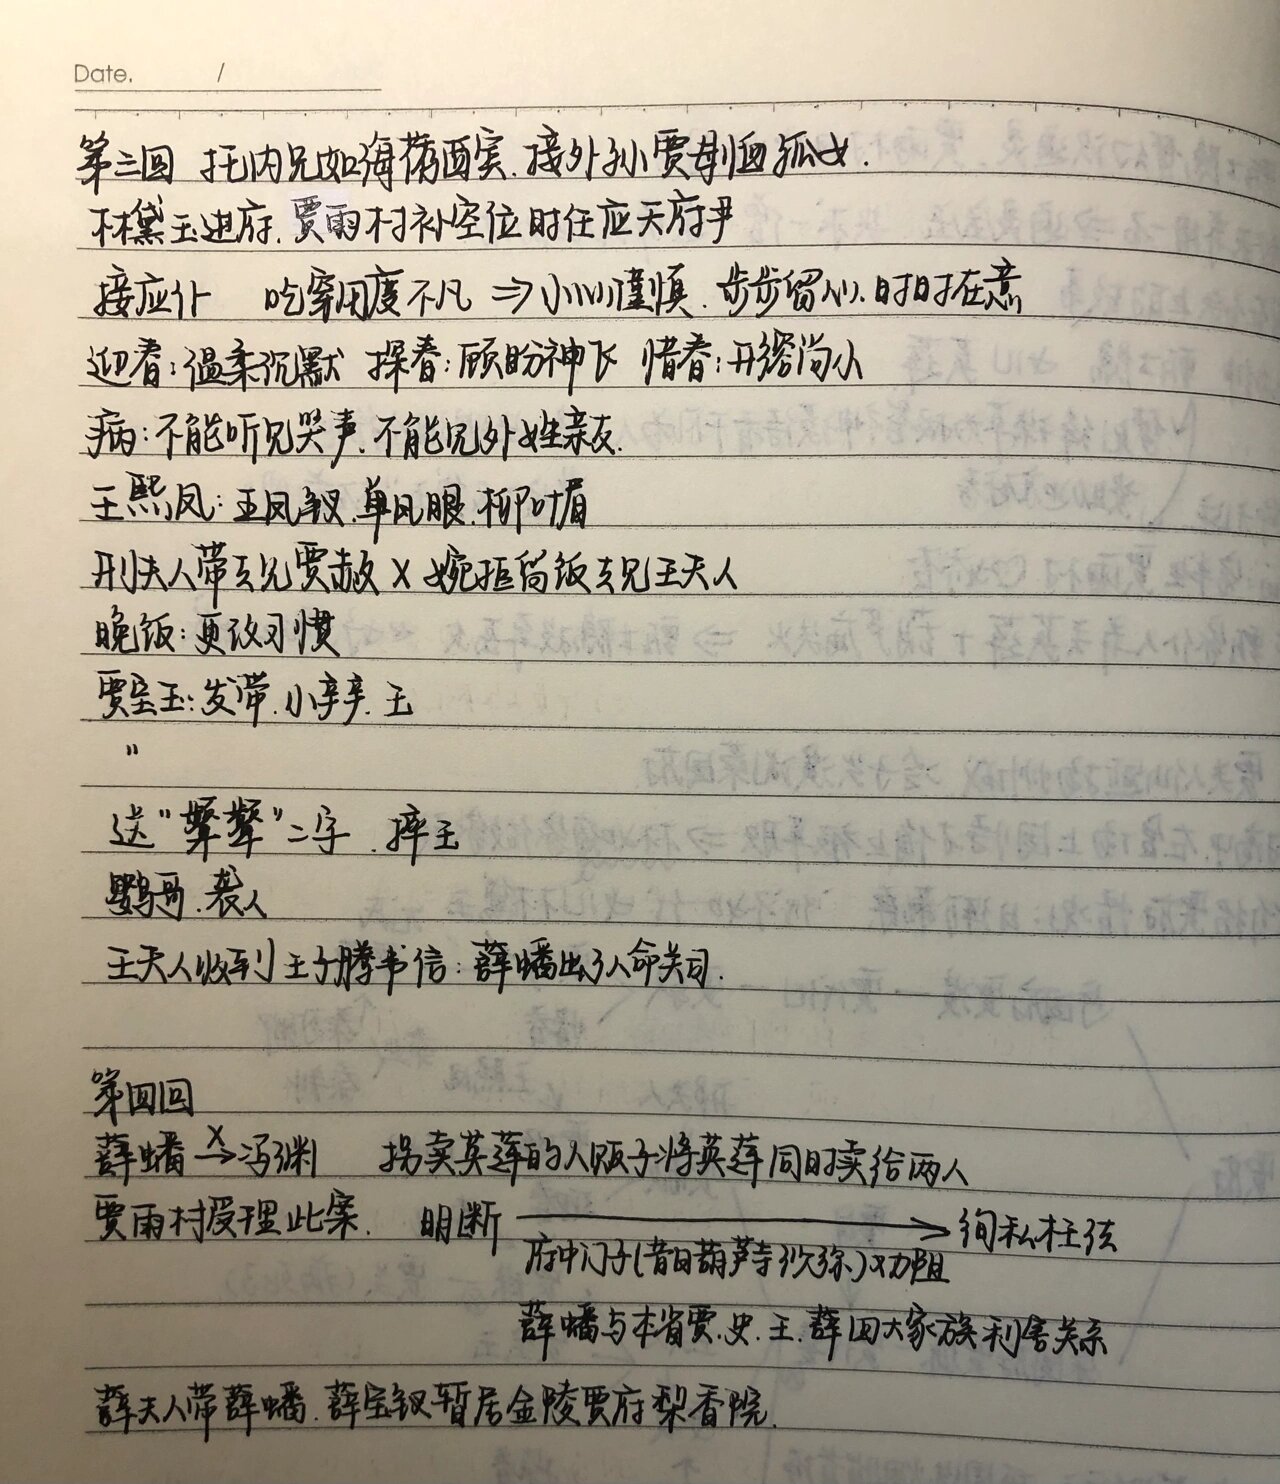 Date. /
第三回 托内兄如海荐西宾.接外孙贾母恤孤女.
林黛玉进府.贾雨村补空位时任应天府尹
接应仆 吃穿用度不凡 ⇒小心谨慎.步步留心.时时在意
迎春:温柔沉默 探春:顾盼神飞 惜春:形容尚小
病:不能听见哭声.不能见外姓亲友.
王熙凤:王凤钗.单凤眼.柳叶眉
刑夫人带去见贾赦 X 婉拒留饭去见王夫人
晚饭:更改习惯
贾宝玉:发带.小辛辛.玉
"
送"颦颦"二字.摔玉
鹦哥.袭人
王夫人收到王子腾书信:薛蟠出了人命关司.
第四回
薛蟠 X→冯渊 拐卖英莲的人贩子将英莲同时卖给两人
贾雨村受理此案. 明断 → 徇私枉法
府中门子(昔日葫芦寺沙弥)劝阻
薛蟠与本省贾.史.王.薛四大家族利害关系
薛夫人带薛蟠.薛宝钗暂居金陵贾府梨香院.